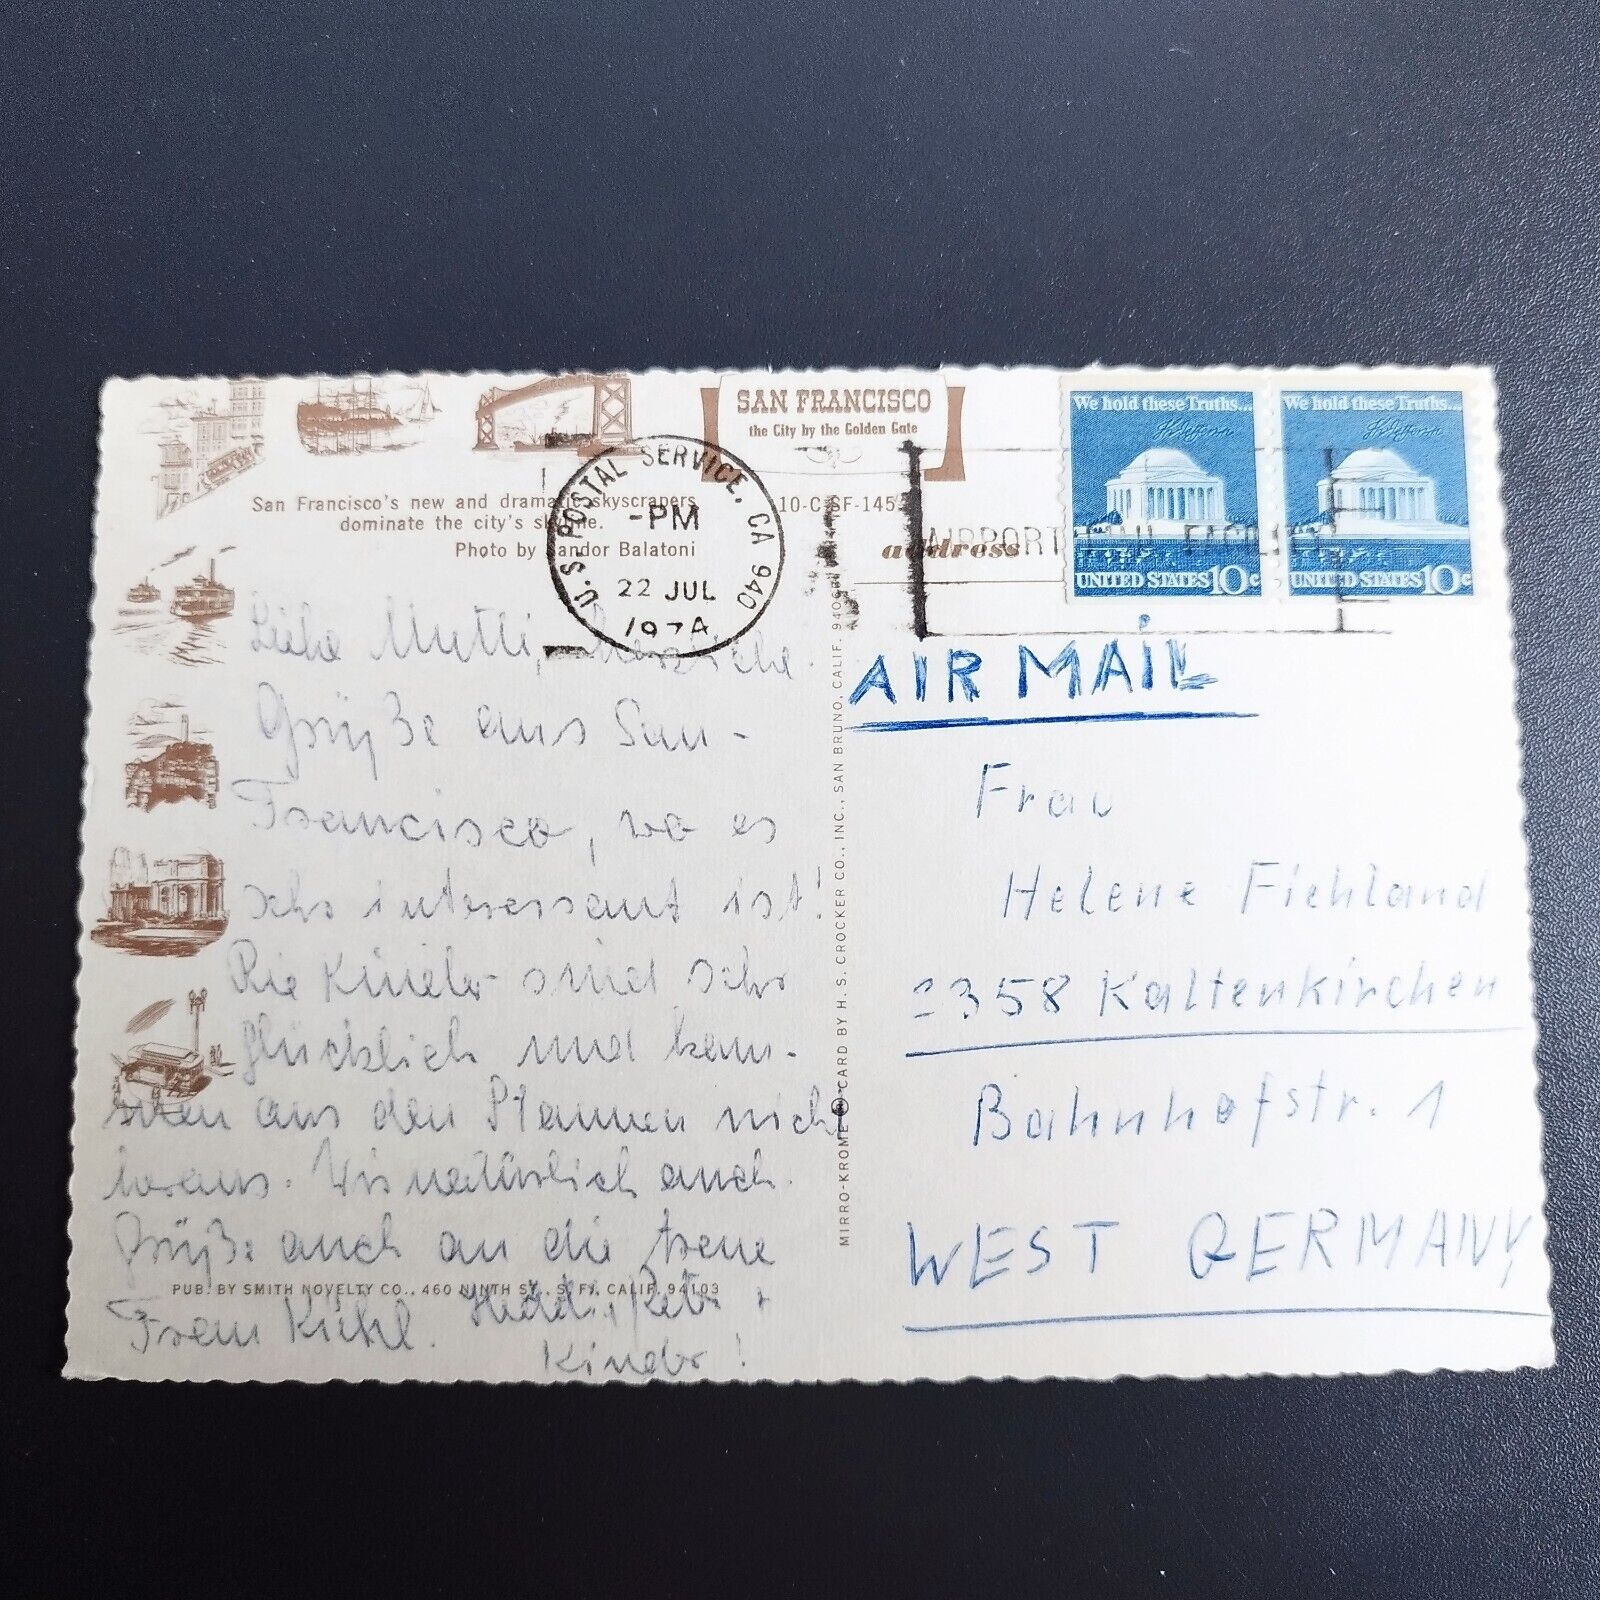 SAN FRANCISCO
the City by the Golden Gate
San Francisco's new and dramatic skyscrapers
dominate the city's skyline.
Photo by Sandor Balatoni
10-C-SF-145
address
U.S. POSTAL SERVICE, CA 940
-PM
22 JUL
1974
AIRPORT MAIL FACILITY
We hold these Truths...
UNITED STATES 10c
We hold these Truths...
UNITED STATES 10c
Liebe Mutti, herzliche
Grüße aus San-
Francisco, wo es
sehr interessant ist!
Die Kinder sind sehr
glücklich und kom-
men aus den Staunen nicht
heraus. Wir natürlich auch.
Grüße auch an die treue
Frau Kühl.
Kinder!
PUB. BY SMITH NOVELTY CO., 460 NINTH ST., S. F., CALIF. 94103
MIRRO-KROME CARD BY H. S. CROCKER CO., INC., SAN BRUNO, CALIF. 940
AIR MAIL
Frau
Helene Fichland
2358 Kaltenkirchen
Bahnhofstr. 1
WEST GERMANY